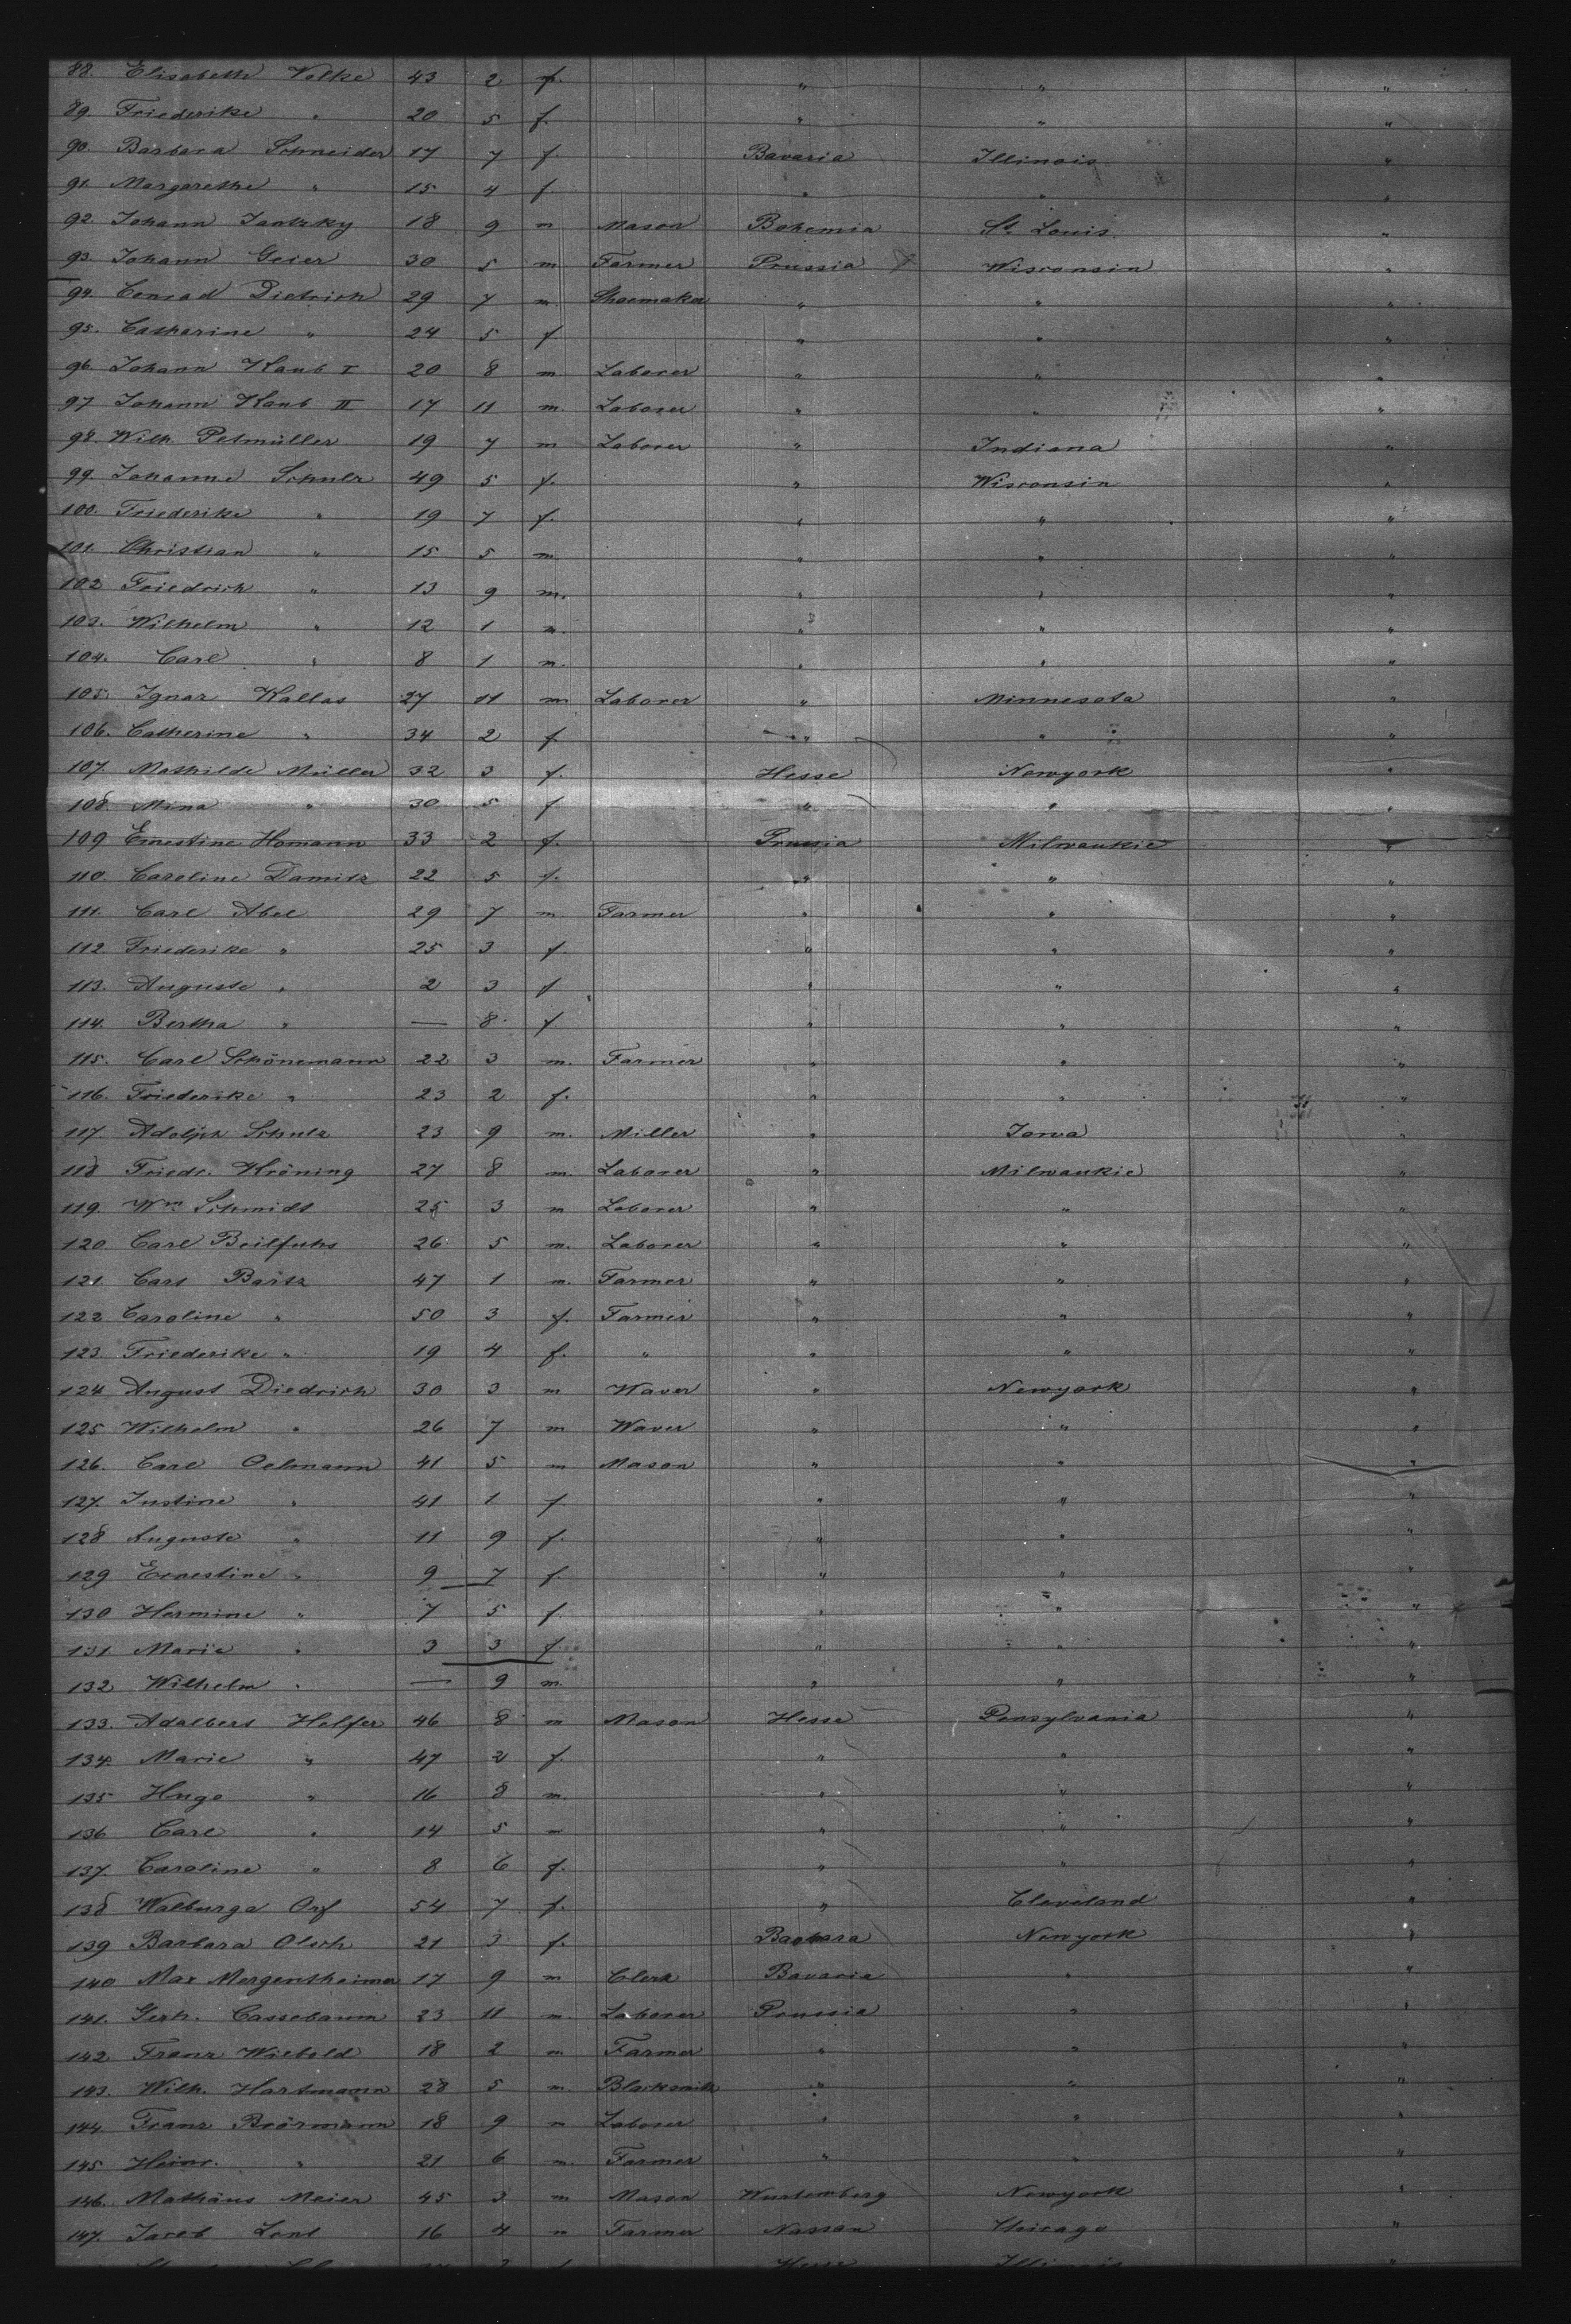 88. Elisabeth Volke 43 2 f. " " "
89. Friederike " 20 5 f. " " "
90. Barbara Schneider 17 7 f. Bavaria Illinois "
91. Margarethe " 15 4 f. " " "
92. Johann 18 9 m Mason Bohemia St. Louis "
93. Johann Geier 30 5 m Farmer Prussia Wisconsin "
94. Conrad Dietrich 29 7 m. Shoemaker " " "
95. Catharine " 24 5 f " " "
96. Johann Kaub I 20 8 m Laborer " " "
97 Johann Kaub II 17 11 m. Laborer " " "
98. Wilh. Petmüller 19 7 m Laborer " Indiana "
99. Johanne Schulz 49 5 f. " Wisconsin "
100. Friederike " 19 7 f. " " "
101. Christian " 15 5 m " " "
102 Friedrich " 13 9 m. " " "
103. Wilhelm " 12 1 m. " " "
104. Carl " 8 1 m. " " "
105. Ignaz Kallas 27 11 m Laborer " Minnesota "
106. Catherine " 34 2 f. " " "
107. Mathilde Müller 32 3 f. Hesse Newyork "
108 Mina " 30 5 f " " "
109 Ernestine Homann 33 2 f. Prussia Milwaukie "
110. Caroline Damitz 22 5 f. " " "
111. Carl Abel 29 7 m Farmer " " "
112. Friederike " 25 3 f. " " "
113. Auguste " 2 3 f " " "
114. Bertha " — 8 f " " "
115. Carl Schönemann 22 3 m. Farmer " " "
116. Friederike " 23 2 f. " " "
117. Adolph Schulz 23 9 m. Miller " Iowa "
118 Friedr. Kröning 27 8 m. Laborer " Milwaukie "
119. Wm. Schmidt 25 3 m Laborer " " "
120 Carl Beilfuhs 26 5 m. Laborer " " "
121. Carl Bartz 47 1 m. Farmer " " "
122 Caroline " 50 3 f. Farmer " " "
123. Friederike " 19 4 f. " " " "
124 August Diedrich 30 3 m Waver " Newyork "
125 Wilhelm " 26 7 m Waver " " "
126. Carl Oelmann 41 5 m Mason " " "
127. Justine " 41 1 f " " "
128 Auguste " 11 9 f. " " "
129 Ernestine " 9 7 f. " " "
130 Hermine " 7 5 f " " "
131 Marie " 3 3 f " " "
132 Wilhelm " — 9 m. " " "
133. Adalbert Helfer 46 8 m Mason Hesse Pensylvania "
134. Marie " 47 2 f. " " "
135 Hugo " 16 8 m. " " "
136 Carl " 14 5 m " " "
137. Caroline " 8 6 f. " " "
138 Walburga Orf 54 7 f. " Cleveland "
139 Barbara Olsch 21 3 f. Newyork "
140 Max Mergentheimer 17 9 m Clerk Bavaria " "
141. Gerh. Cassebaum 23 11 m. Laborer Prussia " "
142. Franz Wiebold 18 2 m Farmer " " "
143. Wilh. Hartmann 28 5 m. Blacksmith " " "
144. Franz Brörmann 18 9 m Laborer " " "
145 Heinr. " 21 6 m. Farmer " " "
146. Mathäus Meier 45 3 m Mason Wurtemberg Newyork "
147. Jacob Lont 16 4 m Farmer Nassau Chicago "
Hesse Illinois "